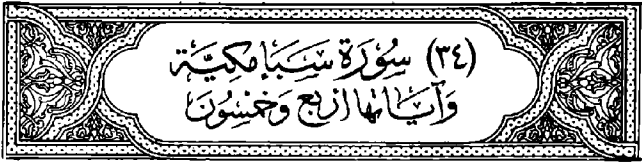 (٣٤) سُورَة سَبَإ مكِيَّة
وَآيَاتهَا ارْبَع وَخَمْسُونَ